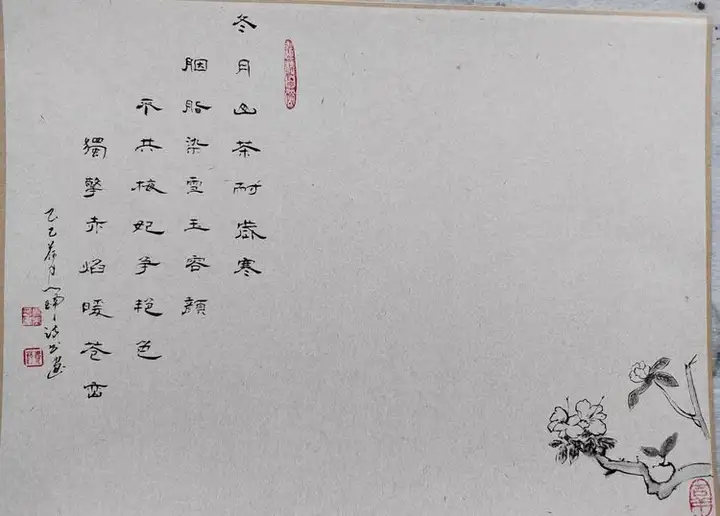 冬月山茶耐歲寒
胭脂染雪玉容顏
不共梅妃争艳色
獨擎赤焰暖苍峦
乙巳荷月